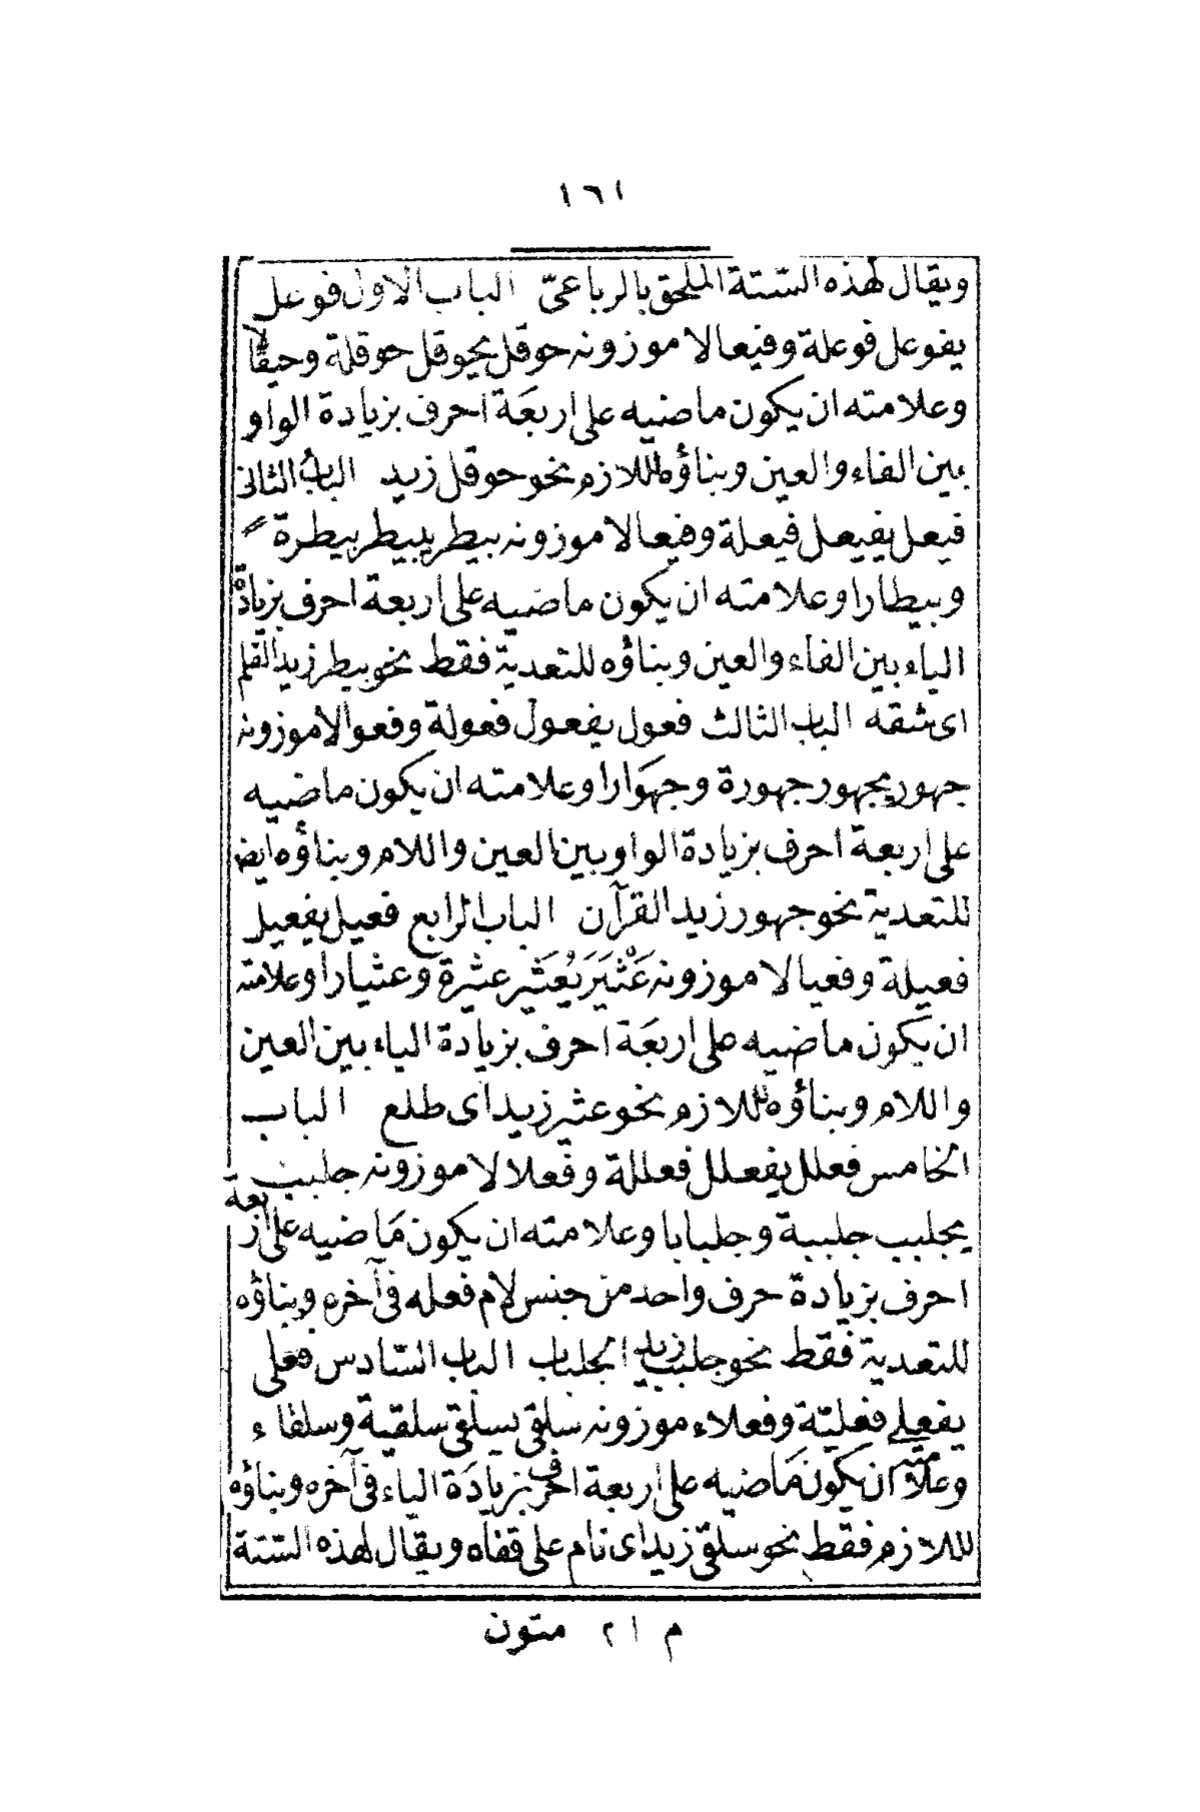 ١٦١
ويقال لهذه الستة الملحق بالرباعىّ الباب الاول فوعل
يفوعل فوعلة وفيعالا موزونه حوقل يحوقل حوقلة وحيقالا
وعلامته ان يكون ماضيه على اربعَة احرف بزيادة الواو
بين الفاء والعين وبناؤه لللازم نحو حوقل زيد الباب الثانى
فيعل يفيعل فيعلة وفيعالا موزونه بيطر يبيطر بيطرة
وبيطارا وعلامته ان يكون ماضيه على اربعة احرف بزيادة
الياء بين الفاء والعين وبناؤه للتعدية فقط نحو بيطر زيد القلم
اى شقه الباب الثالث فعول يفعول فعولة وفعوالا موزونه
جهور يجهور جهورة وجهوَارا وعلامته ان يكون ماضيه
على اربعة احرف بزيادة الواو بين العين واللام وبناؤه ايض
للتعدية نحو جهور زيد القرآن الباب الرابع فعيل يفعيل
فعيلة وفعيالا موزونه عَثْيَرَ يُعَثير عثيرة وعثيارا وعلامته
ان يكون ماضيه على اربعَة احرف بزيادة الياء بين العين
واللام وبناؤه لللازم نحو عثير زيد اى طلع الباب
الخامس فعلل يفعلل فعللة وفعلالا موزونه جلبب
يجلبب جلببة وجلبابا وعلامته ان يكون مَاضيه على اربعة
احرف بزيادة حرف واحد من جنس لام فعله فى آخره وبناؤه
للتعدية فقط نحو جلبب زيد الجلباب الباب السّادس فعلى
يفعلى فعليّة وفعلاء موزونه سلقى يسلقى سلقية وسلقاء
وعلامته ان يكون مَاضيه على اربعة احرف بزيادَة الياء فى آخره وبناؤه
لللازم فقط نحو سلقى زيد اى نام على قفاه ويقال لهذه الستة
م ١٢ متون